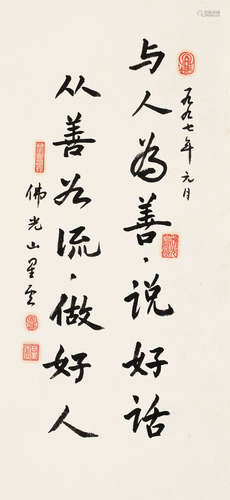 一九九七年元月
与人為善，说好话
从善如流，做好人
佛光山星云